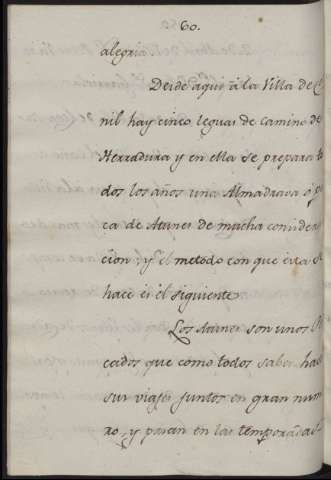 60.
alegria.
Desde aqui à la Villa de C
nil hay cinco leguas de camino de
Herradura y en ella se prepara to
dos los años una Almadrava ô pes
ca de Atunes de mucha considera
cion; y el metodo con que esta se
hace es el siguiente.
Los Atunes son unos Pe
cados que como todos saben hacen
sus viajes juntos en gran nume
ro, y pasan en las temporadas